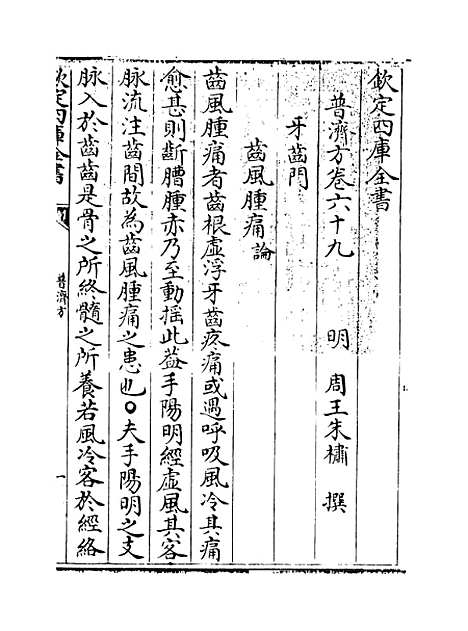 欽定四庫全書
普濟方卷六十九
明 周王朱橚 撰
牙齒門
齒風腫痛論
齒風腫痛者齒根虛浮牙齒疼痛或遇呼吸風冷其痛
愈甚則斷膿腫赤乃至動搖此葢手陽明經虛風其客
脈流注齒間故為齒風腫痛之患也○夫手陽明之支
脈入於齒齒是骨之所終髓之所養若風冷客於經絡
欽定四庫全書
普濟方
一